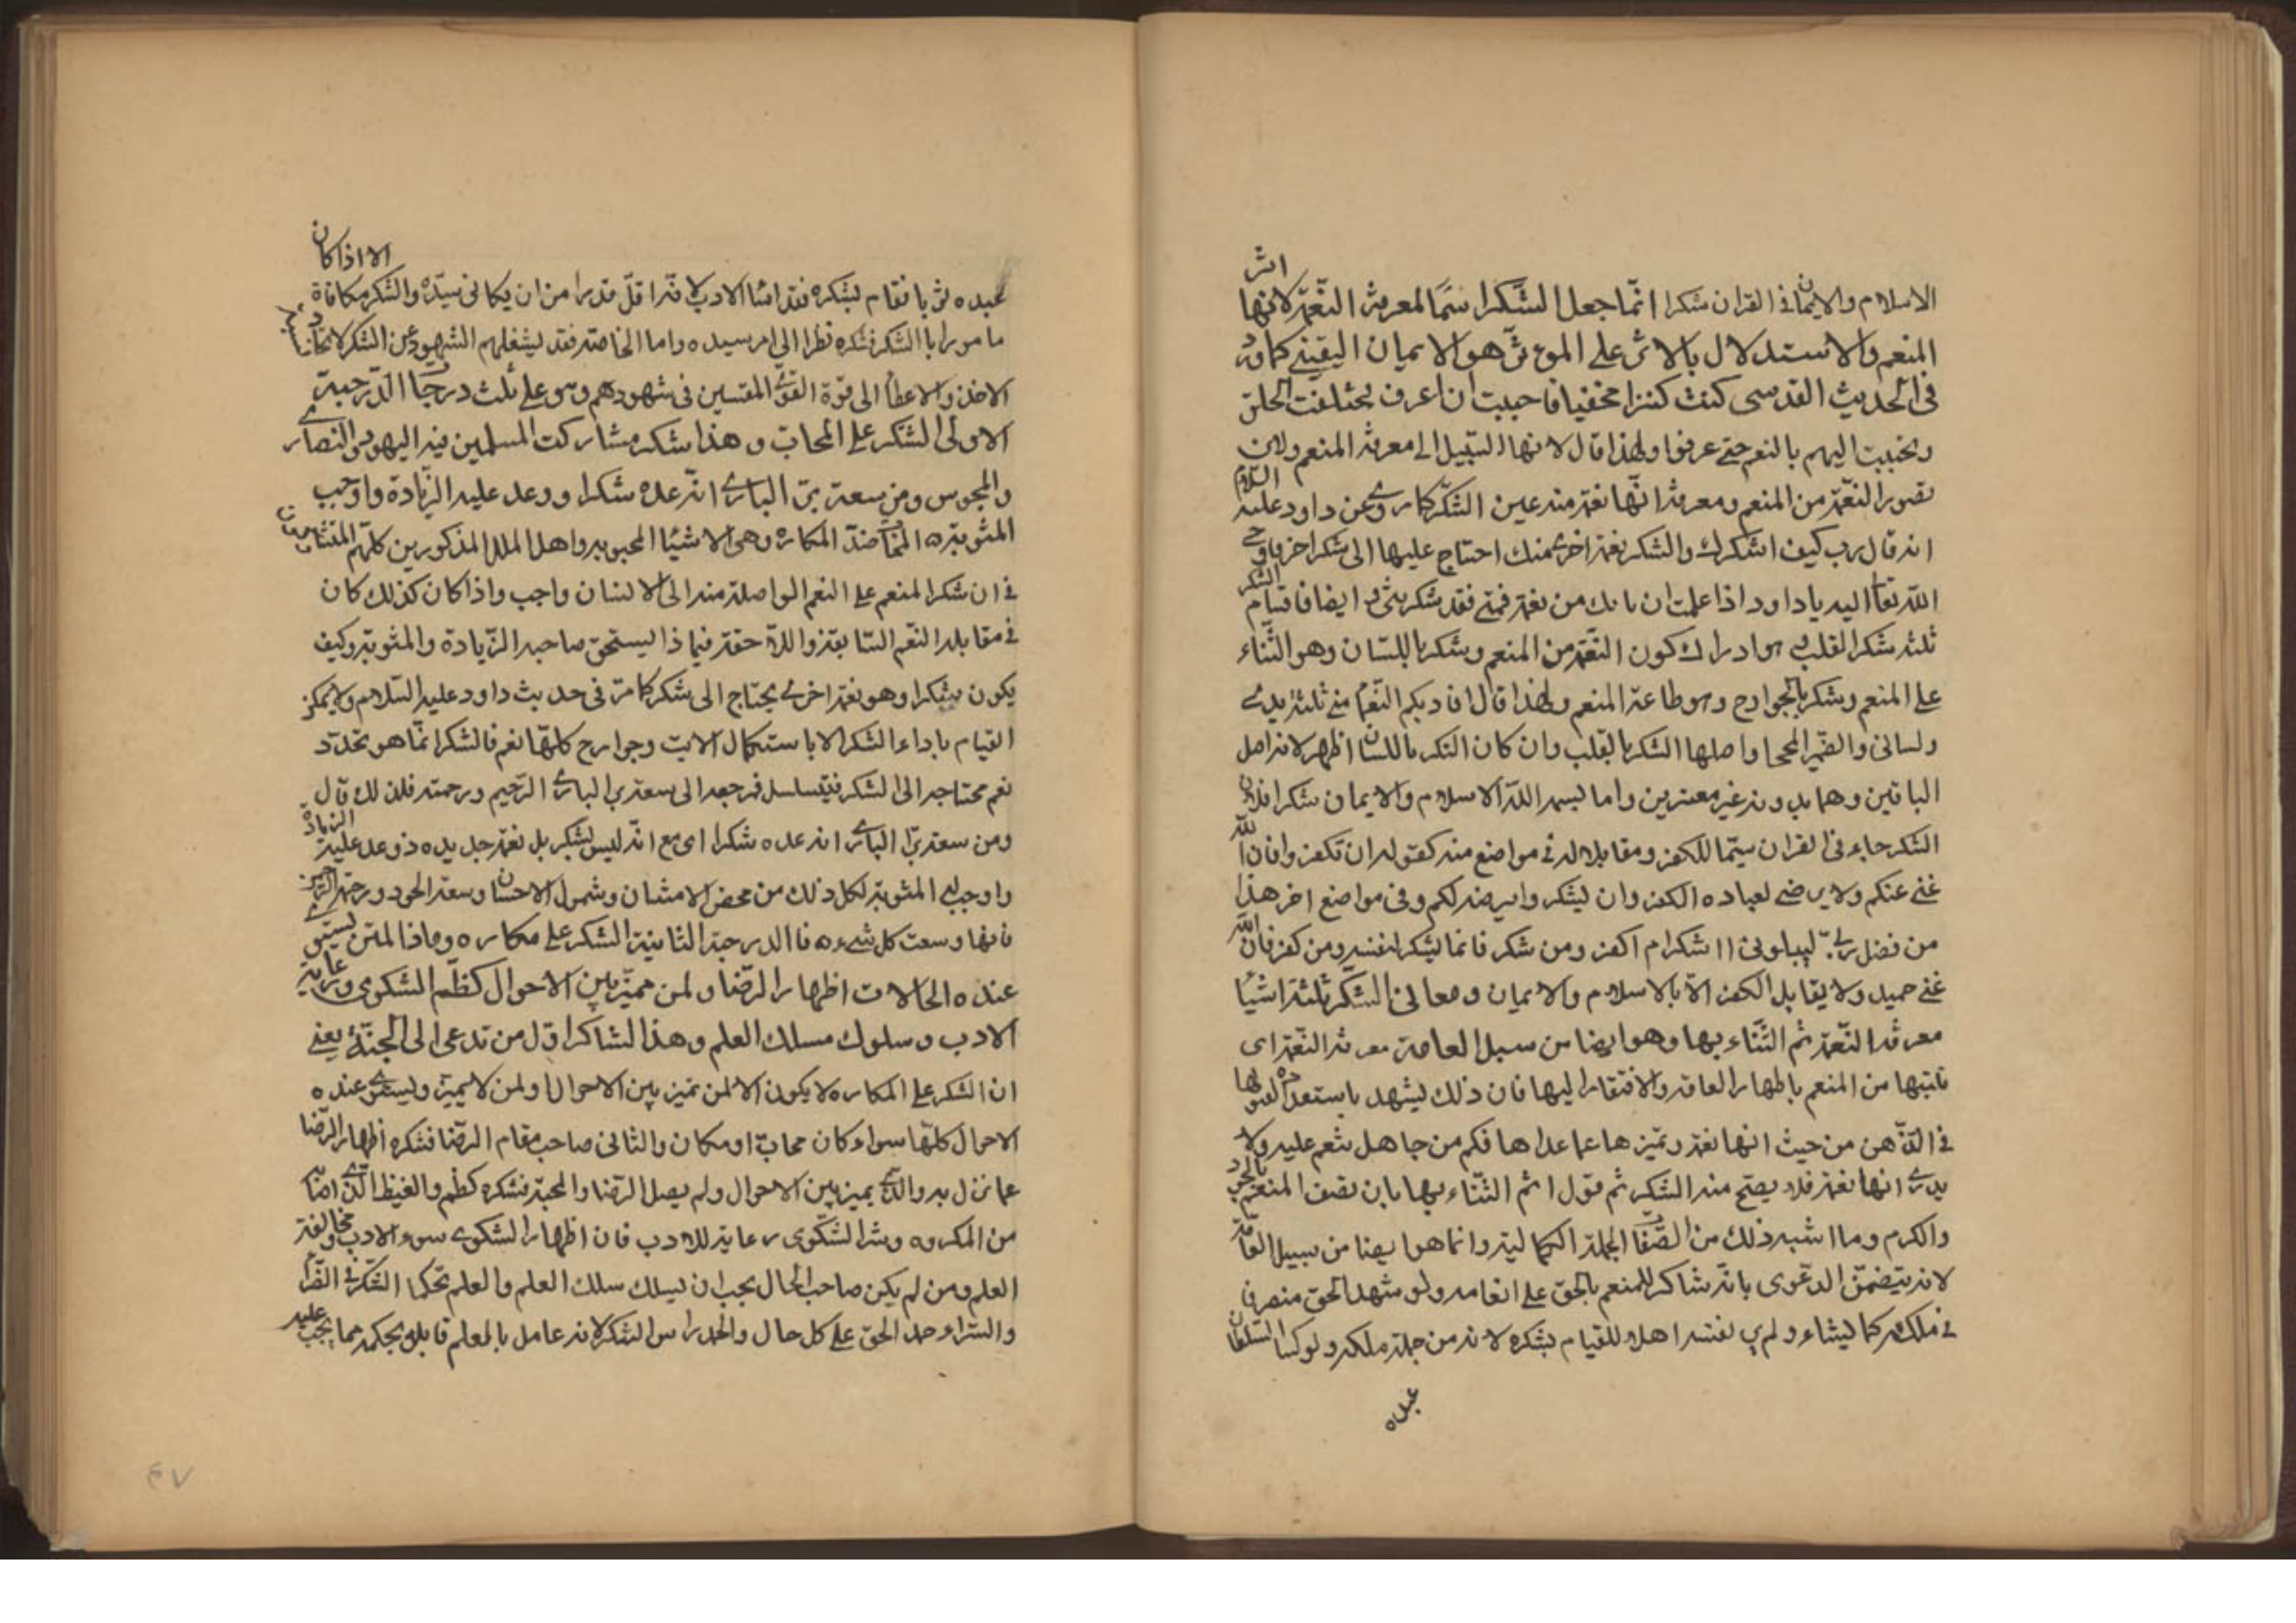 الاسلام والايمان فى القران شكرا انما جعل الشكر اسما لمعرفة النعمة لانها اثر
المنعم والاستدلال بالاثر على المؤثر هو الايمان اليقينى كما ورد
فى الحديث القدسى كنت كنزا مخفيا فاحببت ان اعرف فخلقت الخلق
وتحببت اليهم بالنعم حتى عرفوا ولهذا قال لانها السبيل الى معرفة المنعم ولان
تصور النعمة من المنعم ومعرفة انها نعمة منه عين الشكر كما روى عن داود عليه السلام
انه قال رب كيف اشكرك والشكر نعمة اخرى منك احتاج عليها الى شكر اخر فاوحى
الله تعا اليه يا داود اذا علمت ان ما بك من نعمة فمنى فقد شكرتنى وايضا فاقسام الشكر
ثلثة شكر القلب وهو ادراك كون النعمة من المنعم وشكر باللسان وهو الثناء
على المنعم وشكر بالجوارح وهو طاعة المنعم ولهذا قال افادتكم النعما منى ثلثة يدى
ولسانى والضمير المحجبا واصلها الشكر بالقلب وان كان الشكر باللسان اظهر لانه اصل
الباقين وهما بدونه غير معتبرين واما تسمية الله الاسلام والايمان شكرا فلان
الشكر جاء فى القران سيما للكفر ومقابلا له فى مواضع منه كقوله ان تكفروا فان الله
غنى عنكم ولا يرضى لعباده الكفر وان تشكروا يرضه لكم وفى مواضع اخر هذا
من فضل ربى ليبلونى ااشكر ام اكفر ومن شكر فانما يشكر لنفسه ومن كفر فان الله
غنى حميد ولا يقابل الكفر الا بالاسلام والايمان ومعانى الشكر ثلثة اشيا
معرفة النعمة ثم الثناء بها وهو ايضا من سبل العامة معرفة النعمة اى
من المنعم باظهار الفاقة والافتقار اليها فان ذلك يشهد باستعداده لقبولها
فى الذهن من حيث انها نعمة وتميزها عما عداها فكم من جاهل ينعم عليه ولا
يدرى انها نعمة فلا يصح منه الشكر ثم قول ثم الثناء بها بان تصف المنعم بالجود
والكرم وما اشبه ذلك من الصفات الجملة الكمالية وانما هو ايضا من سبيل العامة
لانه يتضمن الدعوى بانه شاكر للمنعم بالحق على انعامه ولو شهد الحق متصرفا
فى ملكه كما يشاء ولم ير نفسه اهلا للقيام بشكره لانه من جملة ملكه ولو كسا السلطان
عبده
عبده ثوبا فقام بشكره فقد اساء الادب لانه اقل قدرا من ان يكافى سيده والشكر مكافاة الا اذا كان
مامورا بالشكر فشكره نظرا الى امر سيده واما الخاصة فقد يشغلهم الشهود عن الشكر لانجذاب
الاخذ والاعطا الى قوة القوى المقتبسين فى شهودهم وهو على ثلث درجات الدرجة
الاولى الشكر على المحاب وهذا شكر مشاركت المسلمين فيه اليهود والنصارى
والمجوس ومن سعة بر البارى انه عده شكرا ووعد عليه الزيادة واوجب
المثوبة المحاب ضد المكاره وهى الاشيا المحبوبة واهل الملل المذكورين كلهم
فى ان شكر المنعم على النعم الواصلة منه الى الانسان واجب واذا كان كذلك كان
فى مقابلة النعم السابقة واللاحقة فبماذا يستحق صاحبه الزيادة والمثوبة وكيف
يكون شكرا وهو نعمة اخرى يحتاج الى شكر كما مر فى حديث داود عليه السلام ولا يمكن
القيام باداء الشكر الا باستكمال الات وجوارح كلها نعم فالشكر انما هو تجدد
نعم محتاجة الى الشكر فيتسلسل فمرجعه الى سعة بر البارى الرحيم ورحمته فلذلك قال
ومن سعة بر البارى انه عده شكرا اى مع انه ليس بشكر بل نعمة جديده ووعد عليه الزيادة
واوجب له المثوبة لكل ذلك من محض الامتنان وشمول الاحسان وسعة الجود ورحمة الرحمن
فانها وسعت كل شىء فا الدرجة الثانية الشكر على مكاره وهذا لمن يستوى
عنده الحالات اظهار الرضا ولمن يميز بين الاحوال كظم الشكوى ورعاية
الادب وسلوك مسلك العلم وهذا الشاكر اول من تدعى الى الجنة يعنى
ان الشكر على المكاره لا يكون الا لمن تميز بين الاحوال او لمن لا يميز ويستوى عنده
الاحوال كلها سواء كان محاب او مكان والثانى صاحب مقام الرضا فشكره اظهار الرضا
عما نزل به والذى يميز بين الاحوال ولم يصل الرضا والمحبة فشكره كظم والغيظ الذى اصابه
من المكروه وستر الشكوى رعاية للادب فان اظهار الشكوى سوء الادب ومخالفة
العلم ومن لم يكن صاحب الحال يجب ان يسلك سلك العلم والعلم تحكم الشكر فى الضراء
والسراء حمد الحق على كل حال والحمد راس الشكر لانه عامل بالعلم قابل بحكمه مما يجب عليه
٤٧